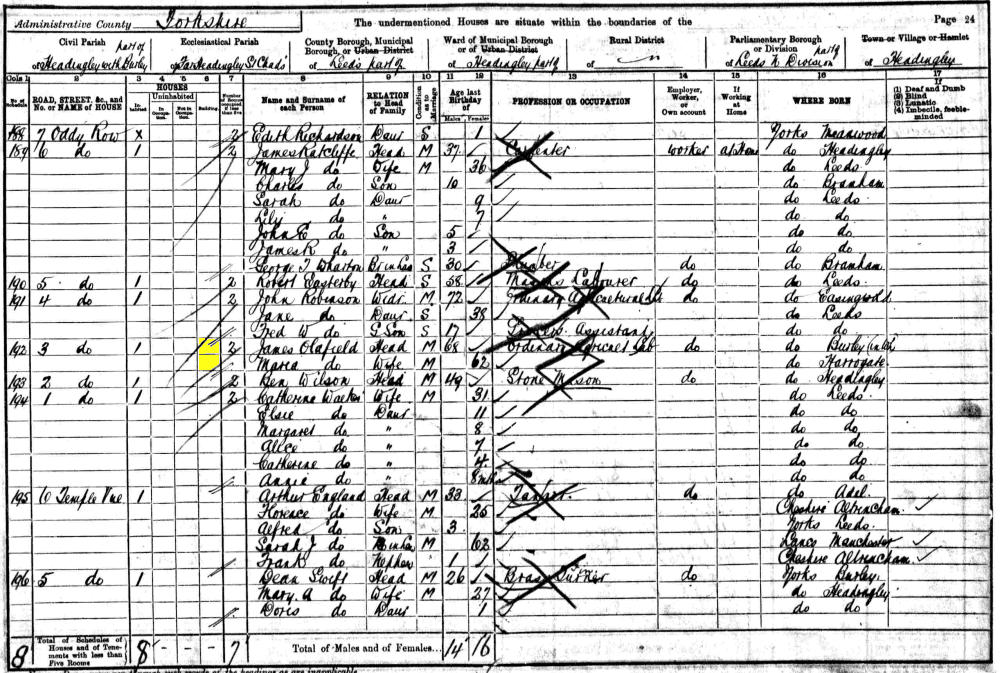 Administrative County Yorkshire The undermentioned Houses are situate within the boundaries of the Page 24
Civil Parish part of Ecclesiastical Parish County Borough, Municipal Borough, or Urban District Ward of Municipal Borough or of Urban District Rural District Parliamentary Borough or Division part of Town or Village or Hamlet
of Headingley with Burley of Far Headingley St Chads of Leeds part of of Headingley part of of of Leeds N Division of Headingley
Cols 1 2 3 4 5 6 7 8 9 10 11 12 13 14 15 16 17
No. of Schedule ROAD, STREET, &c., and No. or NAME of HOUSE HOUSES Inhabited Uninhabited In Occupation Not in Occupation Building Number of Rooms occupied if less than five Name and Surname of each Person RELATION to Head of Family Condition as to Marriage Age last Birthday of Males Females PROFESSION OR OCCUPATION Employer, Worker, or Own account If Working at Home WHERE BORN (1) Deaf and Dumb (2) Blind (3) Lunatic (4) Imbecile, feeble-minded
188 7 Oddy Row x 2 Edith Richardson Daur S 1 Yorks Meanwood
189 6 do 1 2 James Ratcliffe Head M 37 Carpenter worker at Home do Headingley
Mary J do Wife M 36 do Leeds
Charles do Son 10 do Bramham
Sarah do Daur 9 do Leeds
Lily do " 7 do do
John E do Son 5 do do
James R do " 3 do do
George T Wharton Br in law S 30 Plumber do do Bramham
190 5 do 1 2 Robert Easterby Head S 58 Masons Labourer do do Leeds
191 4 do 1 2 John Robinson Widr M 72 Ordinary Agricultural Lab do do Easingwold
Jane do Daur S 38 do Leeds
Fred W do G Son S 17 Assistant do do
192 3 do 1 2 James Oldfield Head M 68 Ordinary Agricul Lab do do Burley
Maria do Wife M 62 do Harrogate
193 2 do 1 2 Ben Wilson Head M 49 Stone Mason do do Headingley
194 1 do 1 2 Catherine Wife M 31 do Leeds
Elsie do Daur 11 do do
Margaret do " 8 do do
Alice do " 7 do do
Catherine do " 4 do do
Annie do " 8 mths do do
195 6 Temple Vue 1 Arthur England Head M 33 do do Adel
Florence do Wife M 25 Cheshire Altrincham
Alfred do Son 3 Yorks Leeds
Sarah J do M 62 Lancs Manchester
Frank do Nephew 1 Cheshire Altrincham
196 5 do 1 Dean Swift Head M 26 Brass Turner do Yorks Burley
Mary A do Wife M 27 do Headingley
Doris do Daur 1 do do
8 Total of Schedules of Houses and of Tenements with less than Five Rooms 8 - - - 7 Total of Males and of Females... 14 16